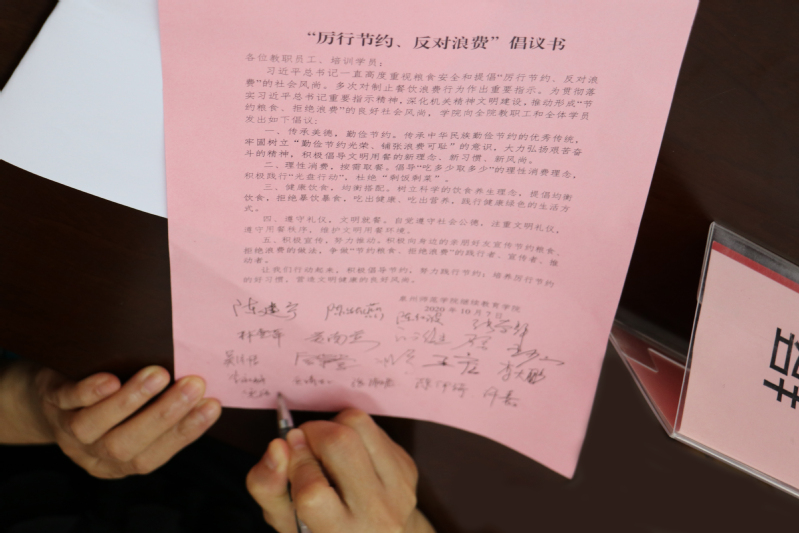 “厉行节约、反对浪费”倡议书
各位教职员工、培训学员：
习近平总书记一直高度重视粮食安全和提倡“厉行节约、反对浪
费”的社会风尚，多次对制止餐饮浪费行为作出重要指示。为贯彻落
实习近平总书记重要指示精神，深化机关精神文明建设，推动形成“节
约粮食、拒绝浪费”的良好社会风尚，学院向全院教职工和全体学员
发出如下倡议：
一、传承美德，勤俭节约。传承中华民族勤俭节约的优秀传统，
牢固树立“勤俭节约光荣、铺张浪费可耻”的意识，大力弘扬艰苦奋
斗的精神，积极倡导文明用餐的新理念、新习惯、新风尚。
二、理性消费，按需取餐。倡导“吃多少取多少”的理性消费理念，
积极践行“光盘行动”，杜绝“剩饭剩菜”。
三、健康饮食，均衡搭配。树立科学的饮食养生理念，提倡均衡
饮食，拒绝暴饮暴食，吃出健康、吃出营养，践行健康绿色的生活方
式。
四、遵守礼仪，文明就餐。自觉遵守社会公德，注重文明礼仪，
遵守用餐秩序，维护文明用餐环境。
五、积极宣传，努力推动。积极向身边的亲朋好友宣传节约粮食、
拒绝浪费的做法，争做“节约粮食、拒绝浪费”的践行者、宣传者、推
动者。
让我们行动起来，积极倡导节约，努力践行节约；培养厉行节约
的好习惯，营造文明健康的良好风尚。
泉州师范学院继续教育学院
2020年10月7日